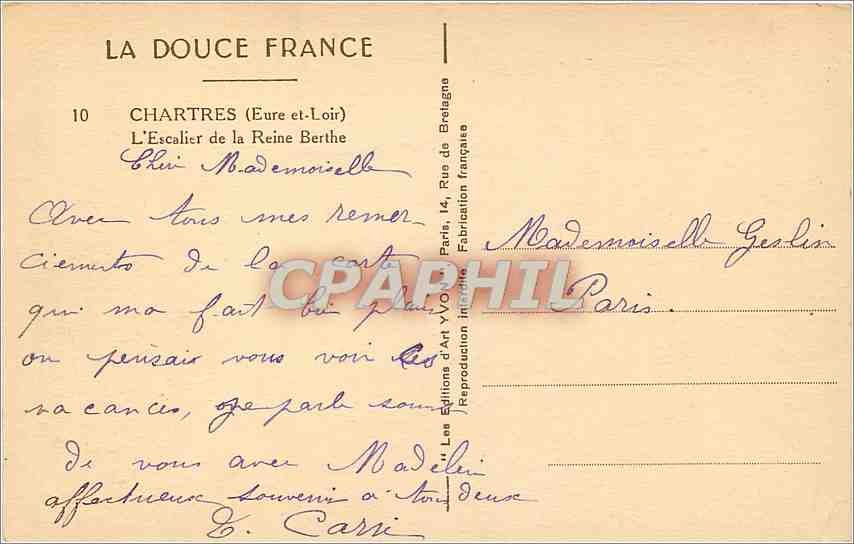 LA DOUCE FRANCE
10 CHARTRES (Eure et-Loir)
L'Escalier de la Reine Berthe
Mademoiselle
Avec tous mes remer-
ciements de la carte
qui ma fait bien plaisir
on pensais vous voir les
vacances, je parle souvent
de vous avec Madelein
affectueux souvenir a tous deux
" Les Editions d'Art YVON " Paris, 14, Rue de Bretagne
Reproduction interdite Fabrication française
Mademoiselle Geslin
Paris.
CPAPHIL